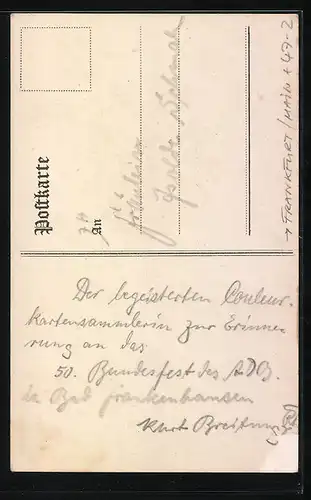 Postkarte
An
Fräulein
Isolde
→ FRANKFURT/MAIN + 47-2
Der begeisterten Couleur-
kartensammlerin zur Erinne-
rung an das
50. Bundesfest des ADB.
in Bad Frankenhausen
Kurt Breitung